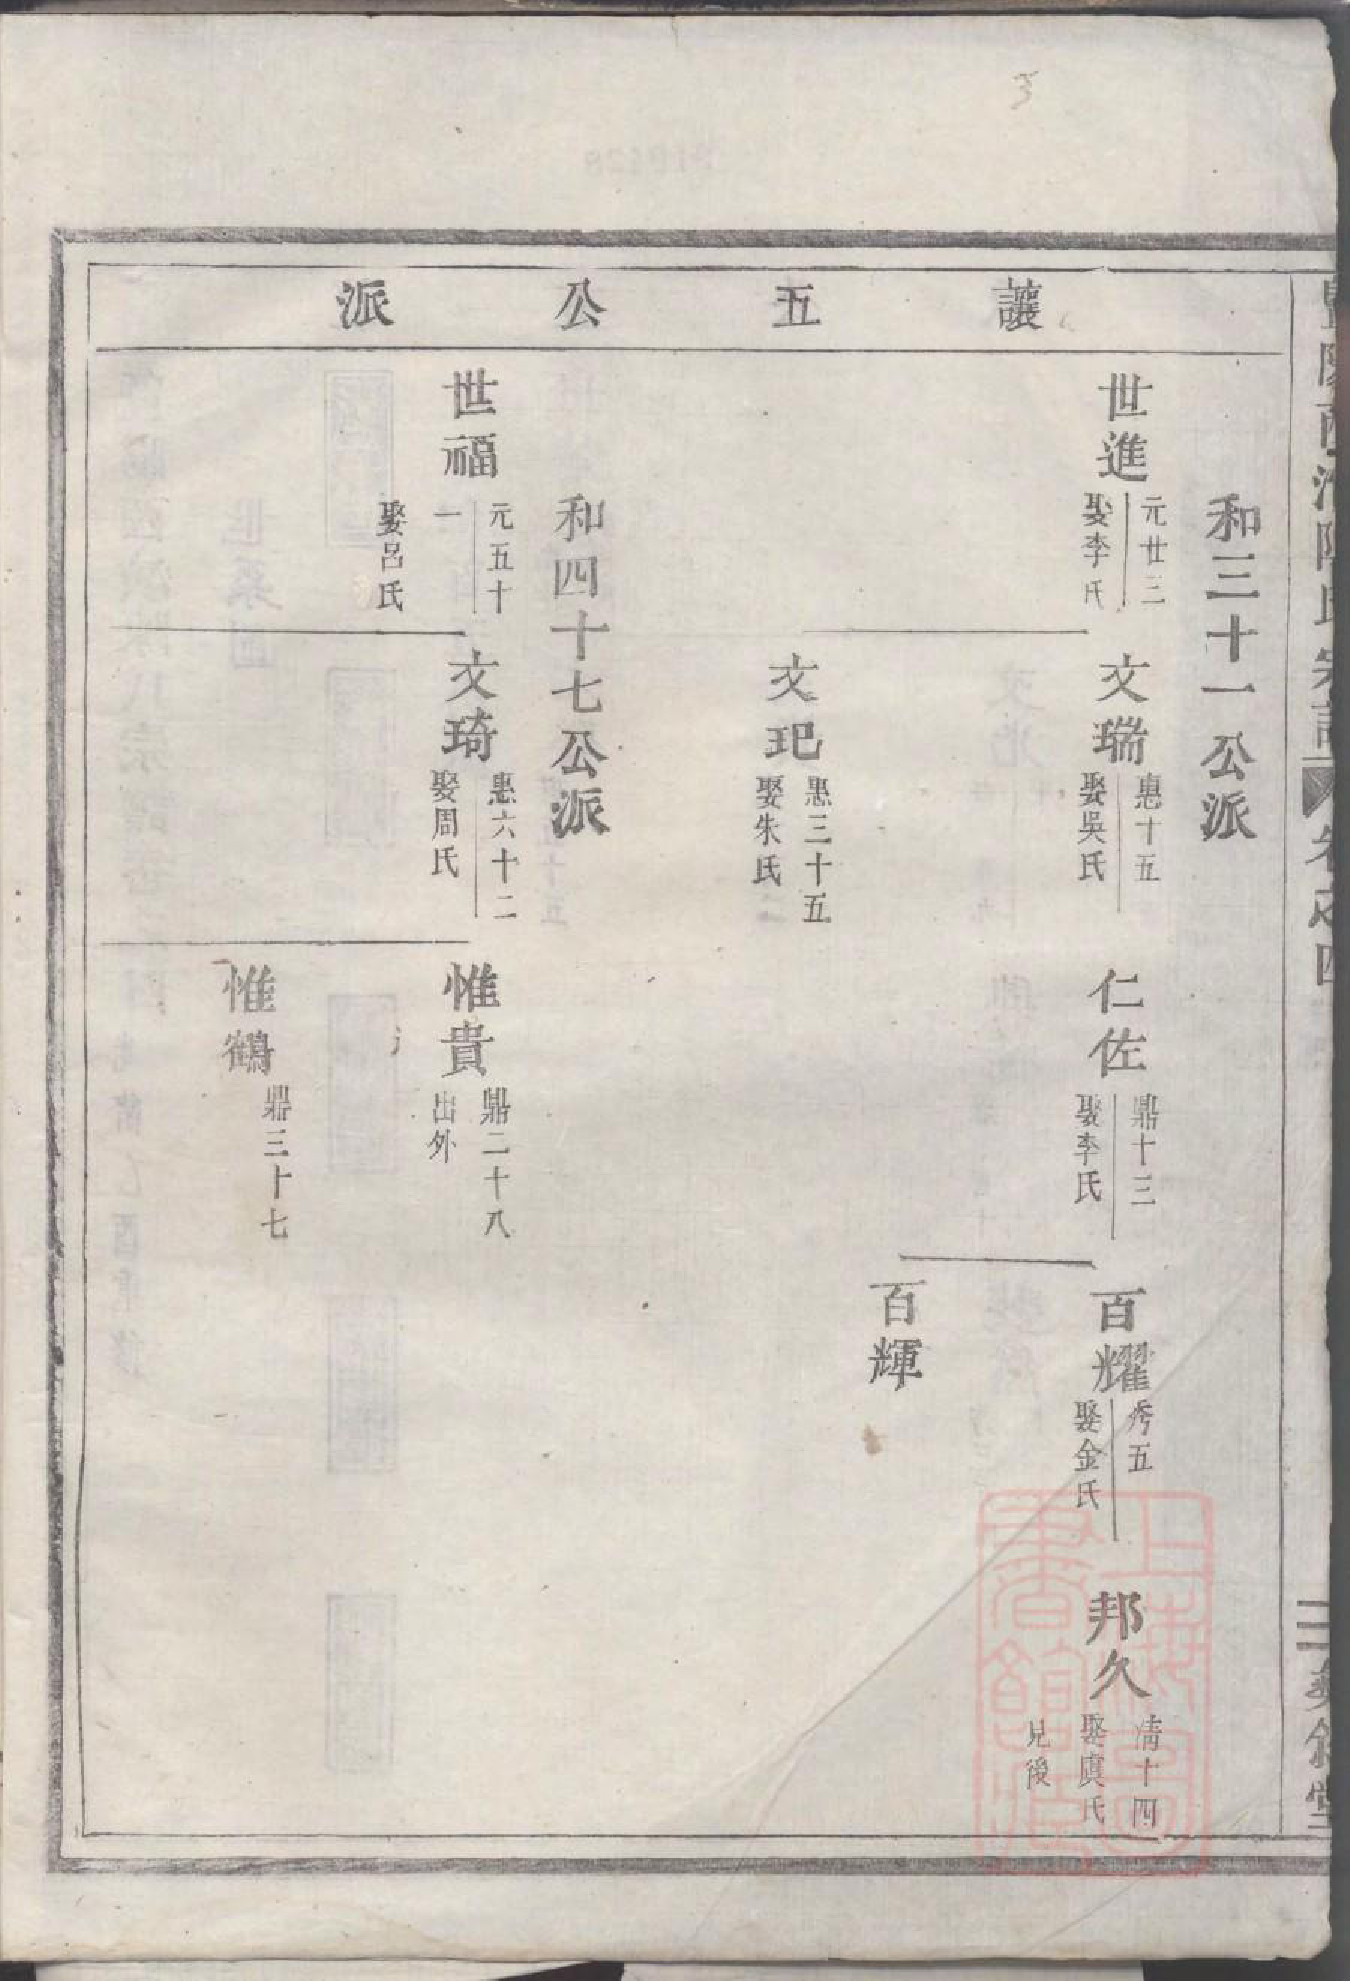 讓五公派
和三十一公派
世進
元廿三
娶李氏
文瑞
惠十五
娶吳氏
仁佐
鼎十三
娶李氏
百耀
秀五
娶金氏
邦久
清十四
娶虞氏
見後
百輝
文玘
惠三十五
娶朱氏
和四十七公派
世福
元五十一
娶呂氏
文琦
惠六十二
娶周氏
惟貴
鼎二十八
出外
惟鶴
鼎三十七
卷之四
上海圖書館藏
3